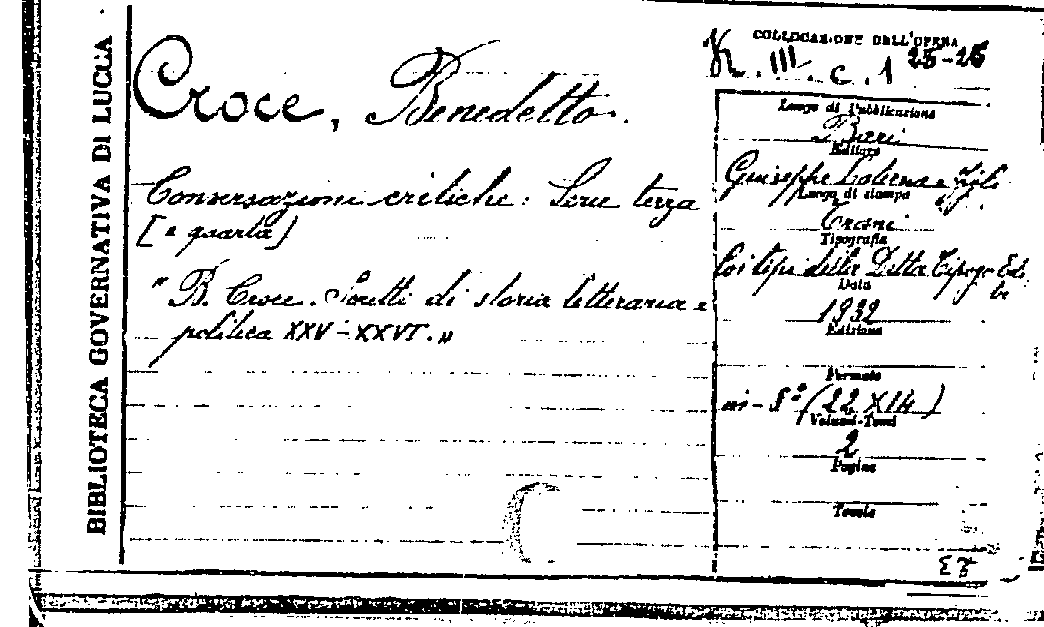 BIBLIOTECA GOVERNATIVA DI LUCCA
Croce, Benedetto.
Conversazioni critiche: Serie terza
[e quarta]
"B. Croce. Scritti di storia letteraria e
politica XXV-XXVI."
COLLOCAZIONE DELL'OPERA
K. III. c. 1 25-26
Luogo di Pubblicazione
Bari
Editore
Giuseppe Laterza e Figli
Luogo di stampa
Trani
Tipografia
Coi tipi della Ditta Tipogr. Ed.
Data
1932
Edizione
Formato
in-8º (22 X 14)
Volumi-Tomi
2
Pagine
Tavole